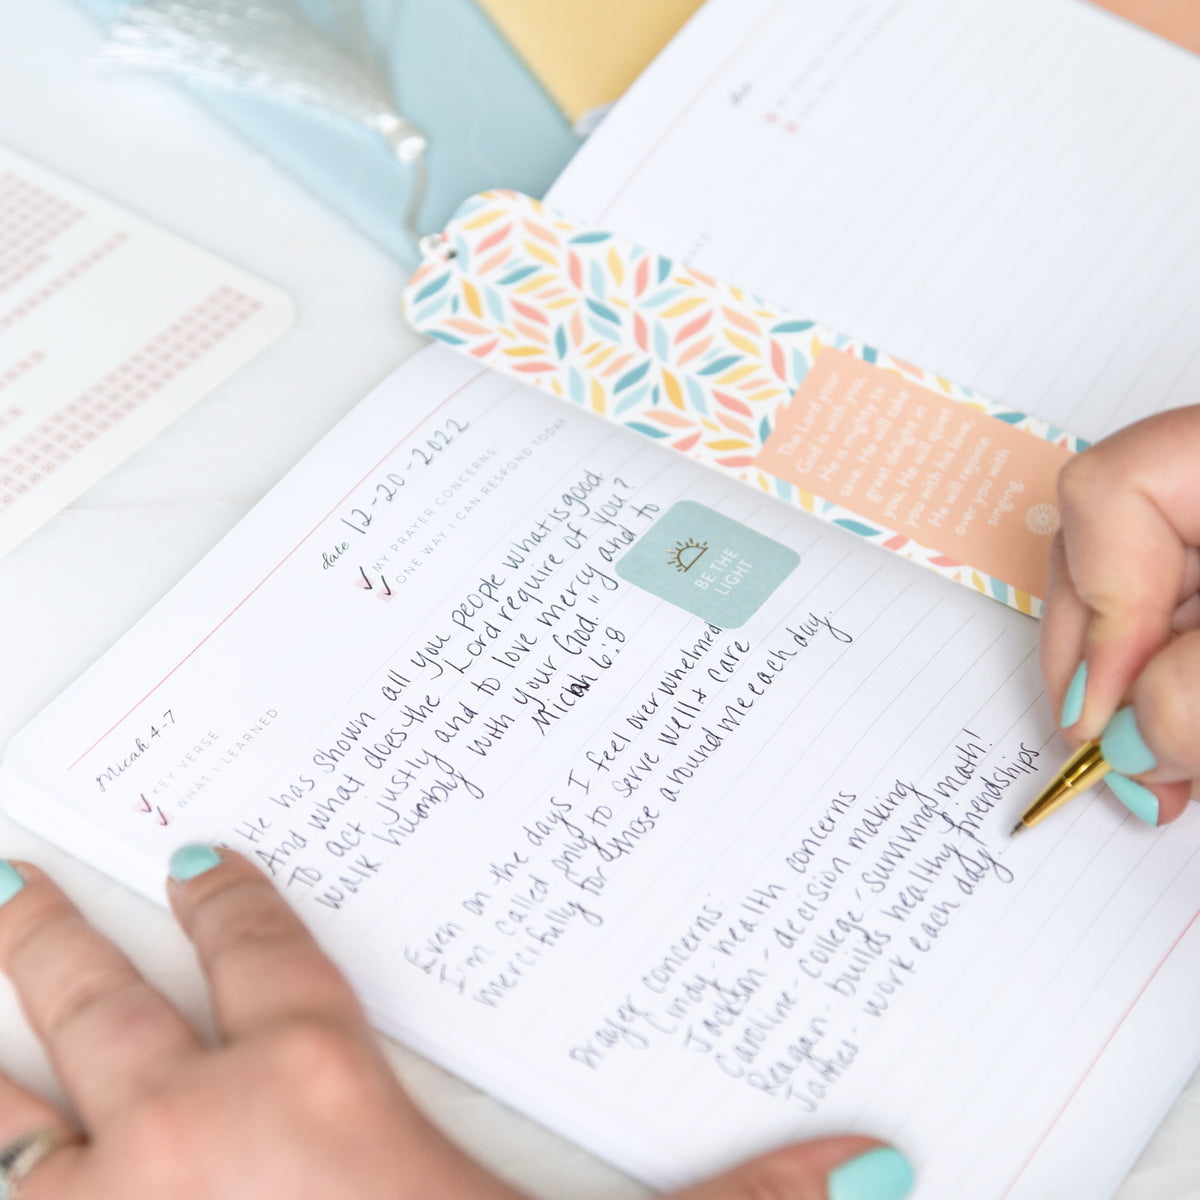 date 12-20-2022
MY PRAYER CONCERNS
ONE WAY I CAN RESPOND TODAY
Micah 4-7
KEY VERSE
WHAT I LEARNED
" He has shown all you people what is good.
And what does the Lord require of you?
To act justly and to love mercy and to
walk humbly with your God."
Micah 6:8
Even on the days I feel overwhelmed
I'm called only to serve well & care
mercifully for those around me each day.
Prayer concerns:
Cindy - health concerns
Jackson - decision making
Caroline - college - surviving math!
Reagan - builds healthy friendships
James - work each day.
BE THE
LIGHT
The Lord your
God is with you,
He is mighty to
save. He will take
great delight in
you, He will quiet
you with his love,
He will rejoice
over you with
singing.
date